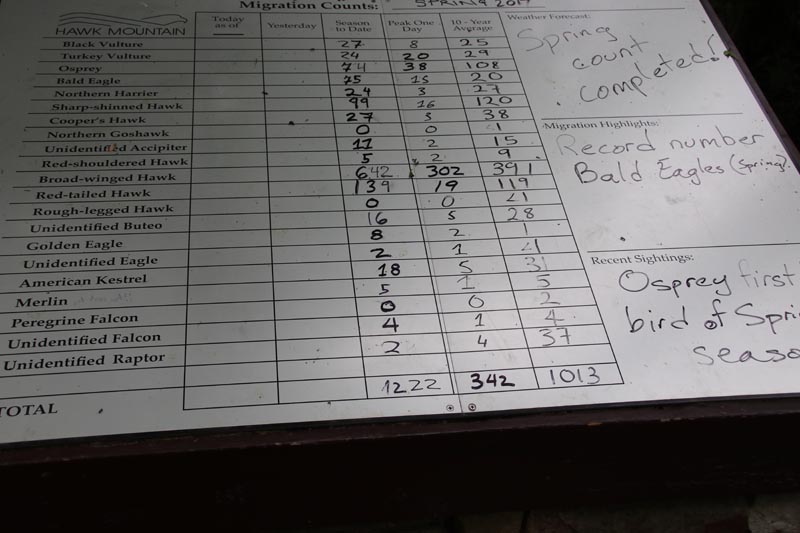 Migration Counts: SPRING 2017
HAWK MOUNTAIN
Today as of
Yesterday
Season to Date
Peak One Day
10 - Year Average
Black Vulture 27 8 25
Turkey Vulture 24 20 29
Osprey 74 38 108
Bald Eagle 75 15 20
Northern Harrier 24 3 27
Sharp-shinned Hawk 99 16 120
Cooper's Hawk 27 38
Northern Goshawk 0 0 <1
Unidentified Accipiter 11 2 15
Red-shouldered Hawk 5 2 9
Broad-winged Hawk 642 302 391
Red-tailed Hawk 139 19 119
Rough-legged Hawk 0 0 <1
Unidentified Buteo 16 5 28
Golden Eagle 8 2 1
Unidentified Eagle 2 1 <1
American Kestrel 18 5 31
Merlin 5 1 5
Peregrine Falcon 0 0 2
Unidentified Falcon 4 1 4
Unidentified Raptor 2 4 37
TOTAL 1222 342 1013
Weather Forecast:
Spring
count
completed!
Migration Highlights:
Record number
Bald Eagles (Spring)
Recent Sightings:
Osprey first
bird of Spri
seaso